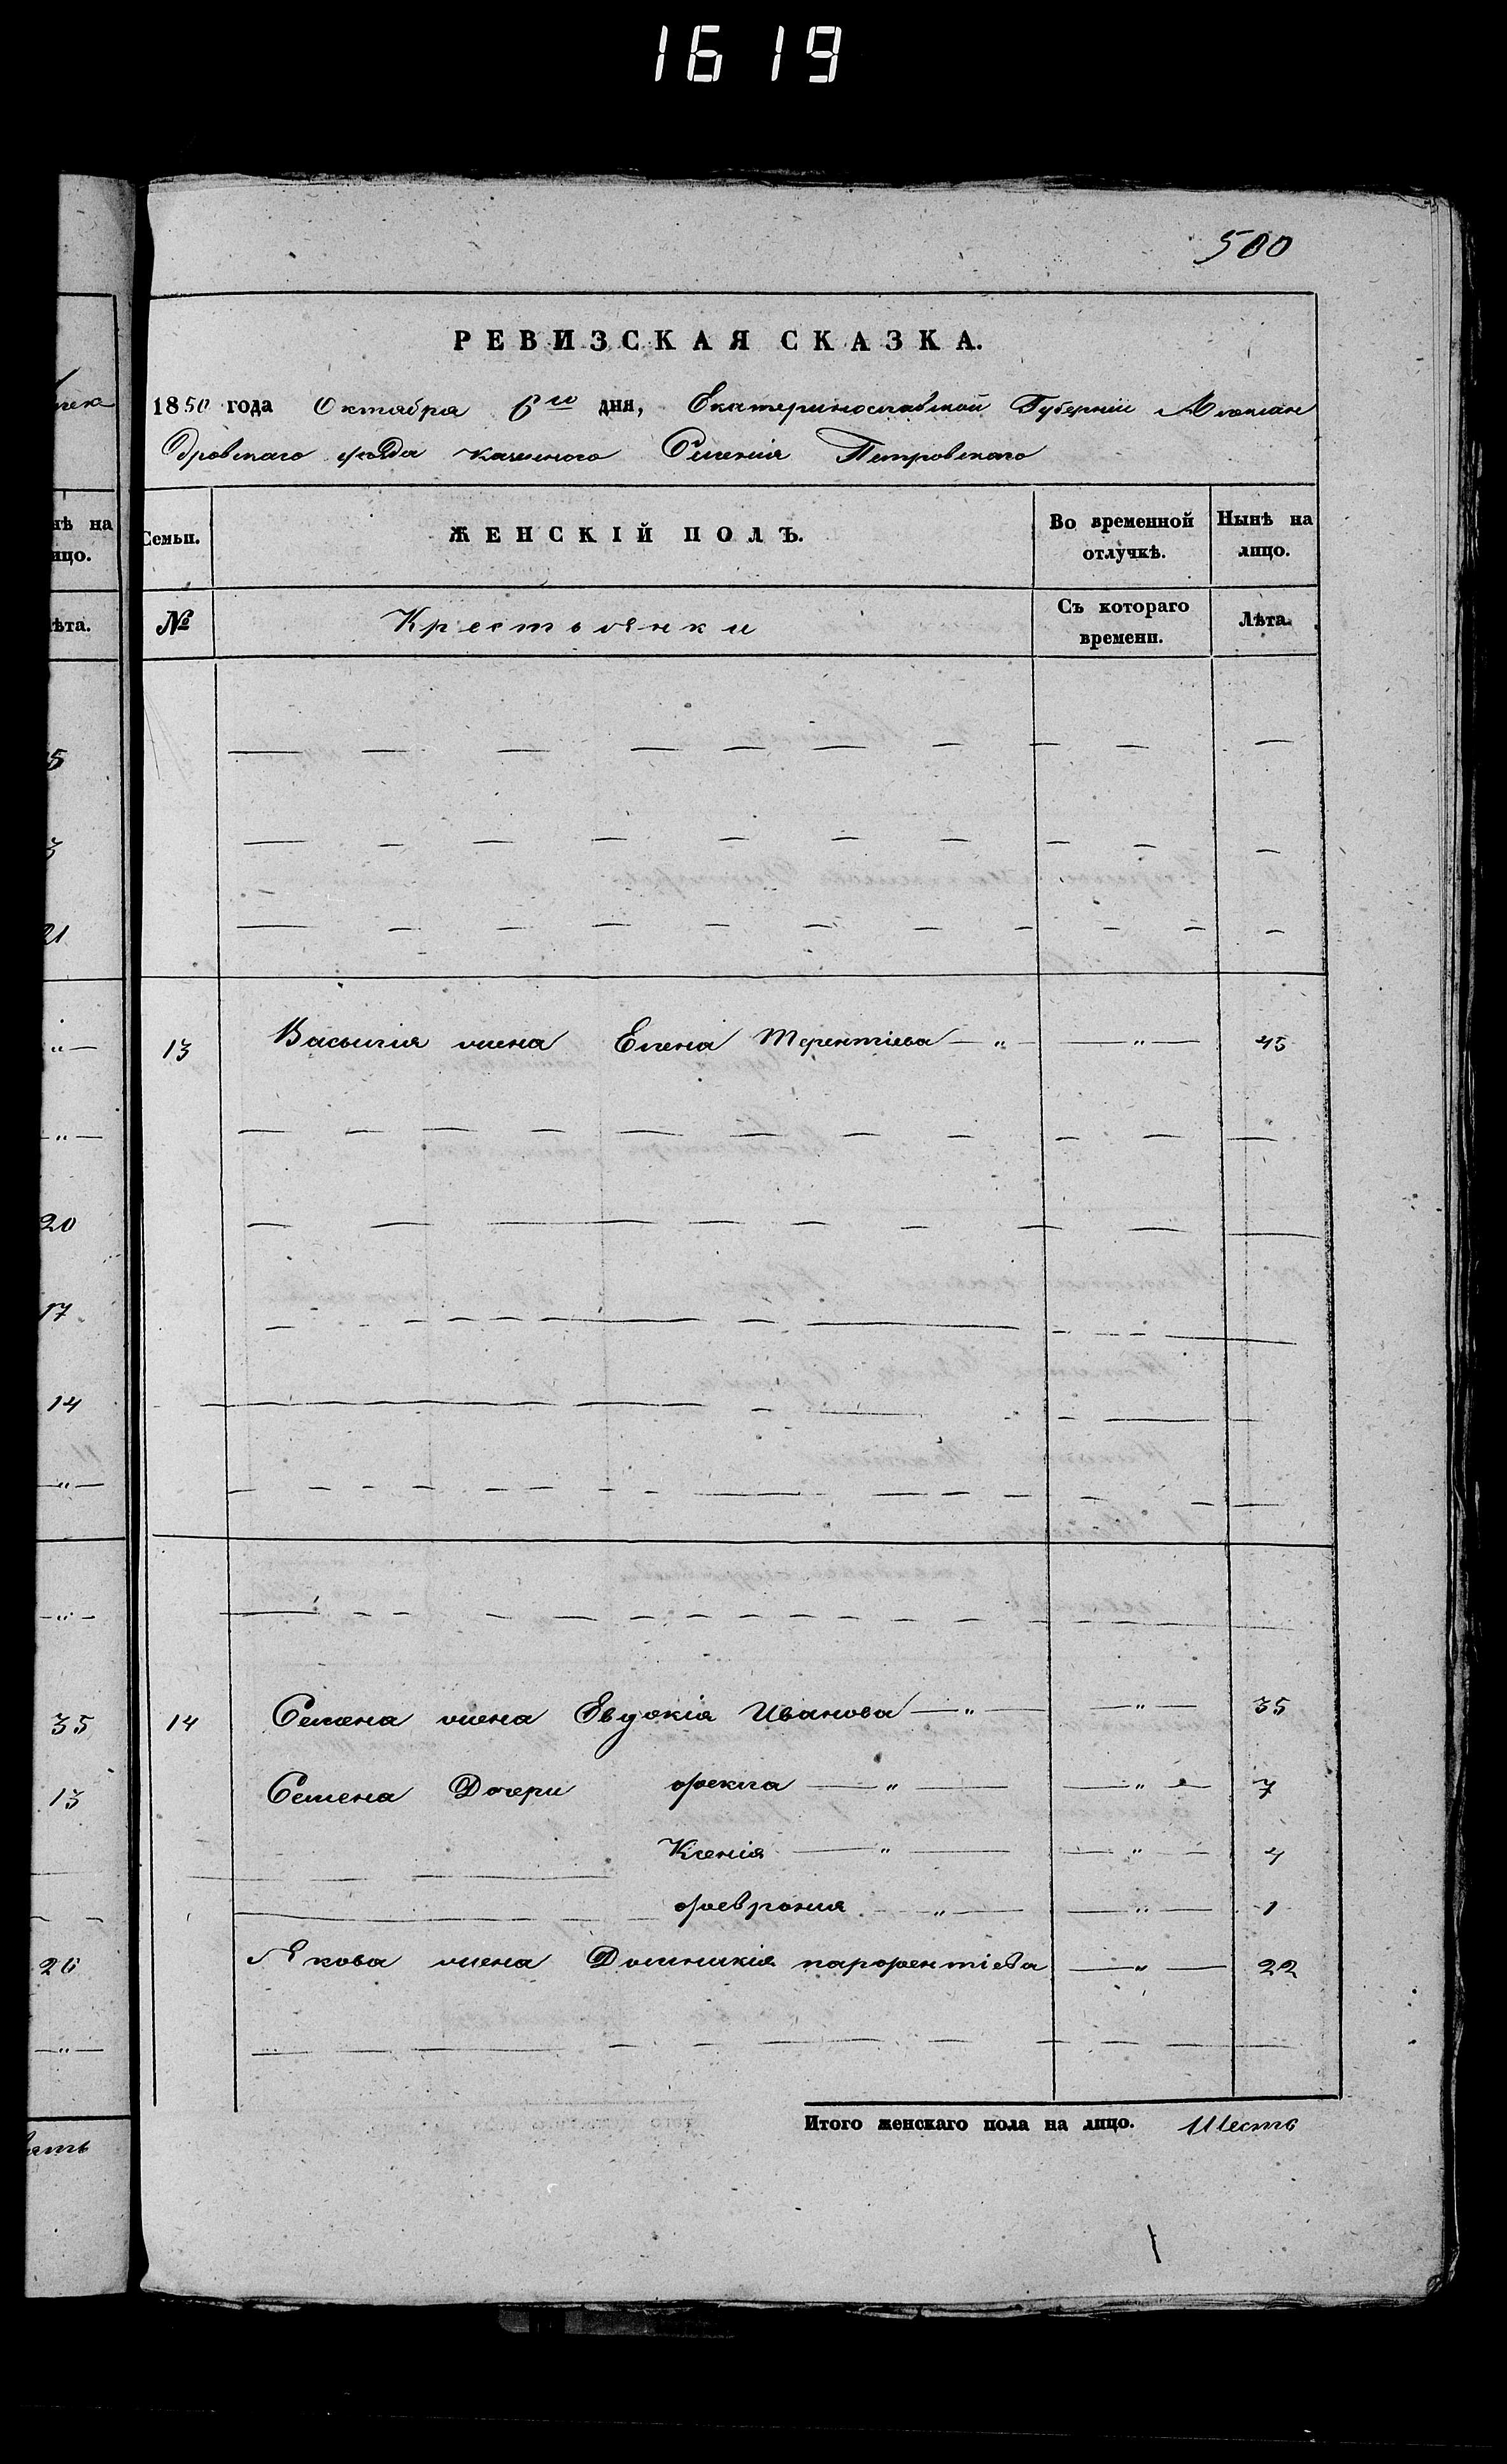 1619
500
РЕВИЗСКАЯ СКАЗКА.
1850 года Октября 6го дня, Екатеринославской Губерніи Алексан
дровскаго уѣзда казенного Селенія Петровскаго
Семьи. ЖЕНСКІЙ ПОЛЪ. Во временной отлучкѣ. Нынѣ на лицо.
№ Крестьянки Съ котораго времени. Лѣта.
нѣ на
ицо.
ѣта.
5
3
21
13 Василія жена Елена Терентіева — " — — " — 45
20
17
14
35 14 Семена жена Евдокія Иванова — " — — " — 35
13 Семена Дочери Фекла — " — — " — 7
Ксенія — " — — " — 4
Феврония — " — — " — 1
26 Якова жена Домникія Парфентіева — " — 22
Итого женскаго пола на лицо. Шесть